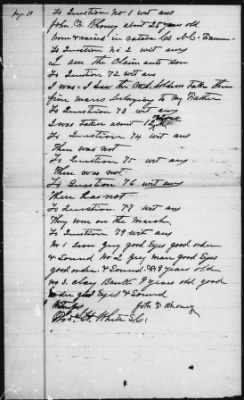 To Question No 1 wit ans
John D. Rhoney about 28 years old
born & raised in Catawba Co N.C. Farmer
To Question No 2 wit ans
I am the Claim ants son
To Question 72 wit ans
I was. I saw the Soldiers take three
fine mares belonging to my Father
To Question 73 wit ans
I was taken about 12
To Question 74 wit ans
There was not
To Question 75 wit ans
There was not
To Question 76 wit ans
There has not
To Question 77 wit ans
They were on the march
To Question 79 wit ans
No 1 Iron Grey good Eyes good order
& Sound No 2 Grey mare good Eyes
good order & Sound 8 years old
No 3 Clay Bank 9 years old good
order good Eyes & Sound
John D Rhoney
White